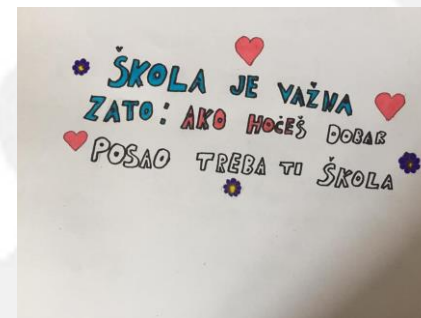 ŠKOLA JE VAŽNA
ZATO: AKO HOĆEŠ DOBAR
POSAO TREBA TI ŠKOLA